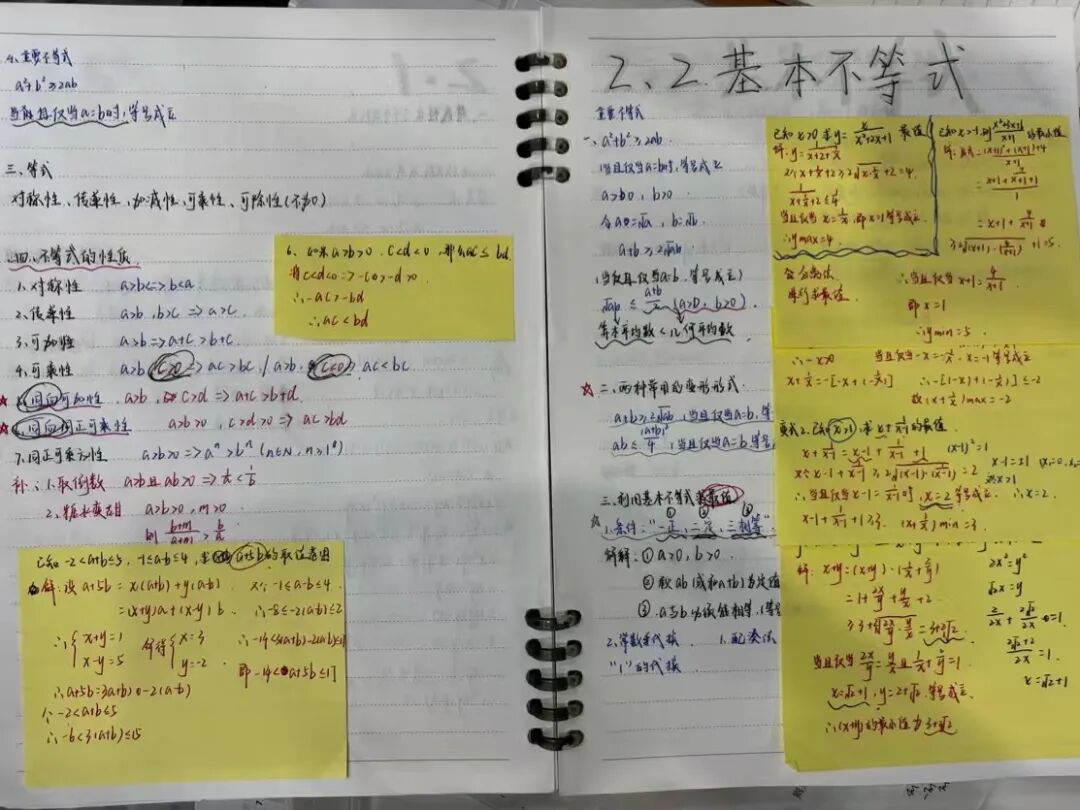 4.重要不等式
a²+b²≥2ab
当且仅当a=b时,等号成立
三、等式
对称性、传递性、加减性、可乘性、可除性(不为0)
四、不等式的性质
1.对称性 a>b<=>b<a
2.传递性 a>b,b>c⇒a>c
3.可加性 a>b⇒a+c>b+c
4.可乘性 a>b c>0⇒ac>bc / a>b c<0 ac<bc
同向可加性 a>b, c>d⇒a+c>b+d
同向同正可乘性 a>b>0, c>d>0⇒ac>bd
7.同正可乘方性 a>b>0⇒aⁿ>bⁿ(n∈N,n≥1)
补:1.取倒数 a>b且ab>0⇒1/a<1/b
2.糖水变甜 a>b>0,m>0
则 (b+m)/(a+m)>b/a
6.如果a>b>0,c<d<0,那么ac≤bd
c<d<0⇒-c>-d>0
∴-ac>-bd
∴ac<bd
已知-2<a+b≤5,-1≤a-b≤4,求a+5b的取值范围
解:设a+5b=x(a+b)+y(a-b)
=(x+y)a+(x-y)b
∴{x+y=1 x-y=5 解得{x=3 y=-2
∴a+5b=3(a+b)-2(a-b)
个-2<a+b≤5
∴-6<3(a+b)≤15
又个-1≤a-b≤4
∴-8≤-2(a-b)≤2
∴-14<3(a+b)-2(a-b)≤17
即-14<a+5b≤17
2、2基本不等式
重要不等式
一、a²+b²≥2ab
(当且仅当a=b时,等号成立
a>0,b>0
令a=√a,b=√b
a+b≥2√ab
(当且仅当a=b,等号成立)
√ab≤(a+b)/2(a>0,b>0)
二、两种常用的变形形式
a+b≥2√ab(当且仅当a=b,等
ab≤(a+b)²/4(当且仅当a=b,等号
三、利用基本不等式求最值
1.条件:"一正,二定,三相等"
解释:①a>0,b>0
②积ab(或和a+b)为定值
③a与b必须能相等,(等
2.常数代换 1.配凑法
"1"的代换
已知x>0求y=x/(x²+2x+1)最值
解:y=1/(x+2+1/x)
x+1/x+2≥2√(x·1/x)+2=4
1/(x+1/x+2)≤1/4
当且仅当x=1/x,即x=1等号成立
∴ymax=4
进行求最值
的最小值
解:原式=((x+1)²+(x+1)+4)/(x+1)
=x+1+4/(x+1)+1
∴当且仅当x+1=4/(x+1)
即x=1
∴ymin=5
∴-x>0
x+1/x=-[-x+(-1/x)]
当且仅当-x=-1/x,x=-1等号成立
≤-2
故(x+1/x)max=-2
变式2.已知x>1,求x+1/(x-1)的最值
x+1/(x-1)=x-1+1/(x-1)+1
(x-1)²=1
x-1=±1
个x-1+1/(x-1)≥2√((x-1)·1/(x-1))=2
∴当且仅当x-1=1/(x-1)时,x=2等号成立 ∴x=2
x-1+1/(x-1)+1≥3 (x+1/(x-1))min=3
解:x+y=(x+y)·(1/x+2/y)
=1+2x/y+y/x+2
≥3+2√(2x/y·y/x)=3+2√2
当且仅当2x/y=y/x且1/x+2/y=1
x=√2+1,y=2+√2等号成立
∴(x+y)的最小值为3+2√2
2x²=y²
√2x=y
x=√2+1